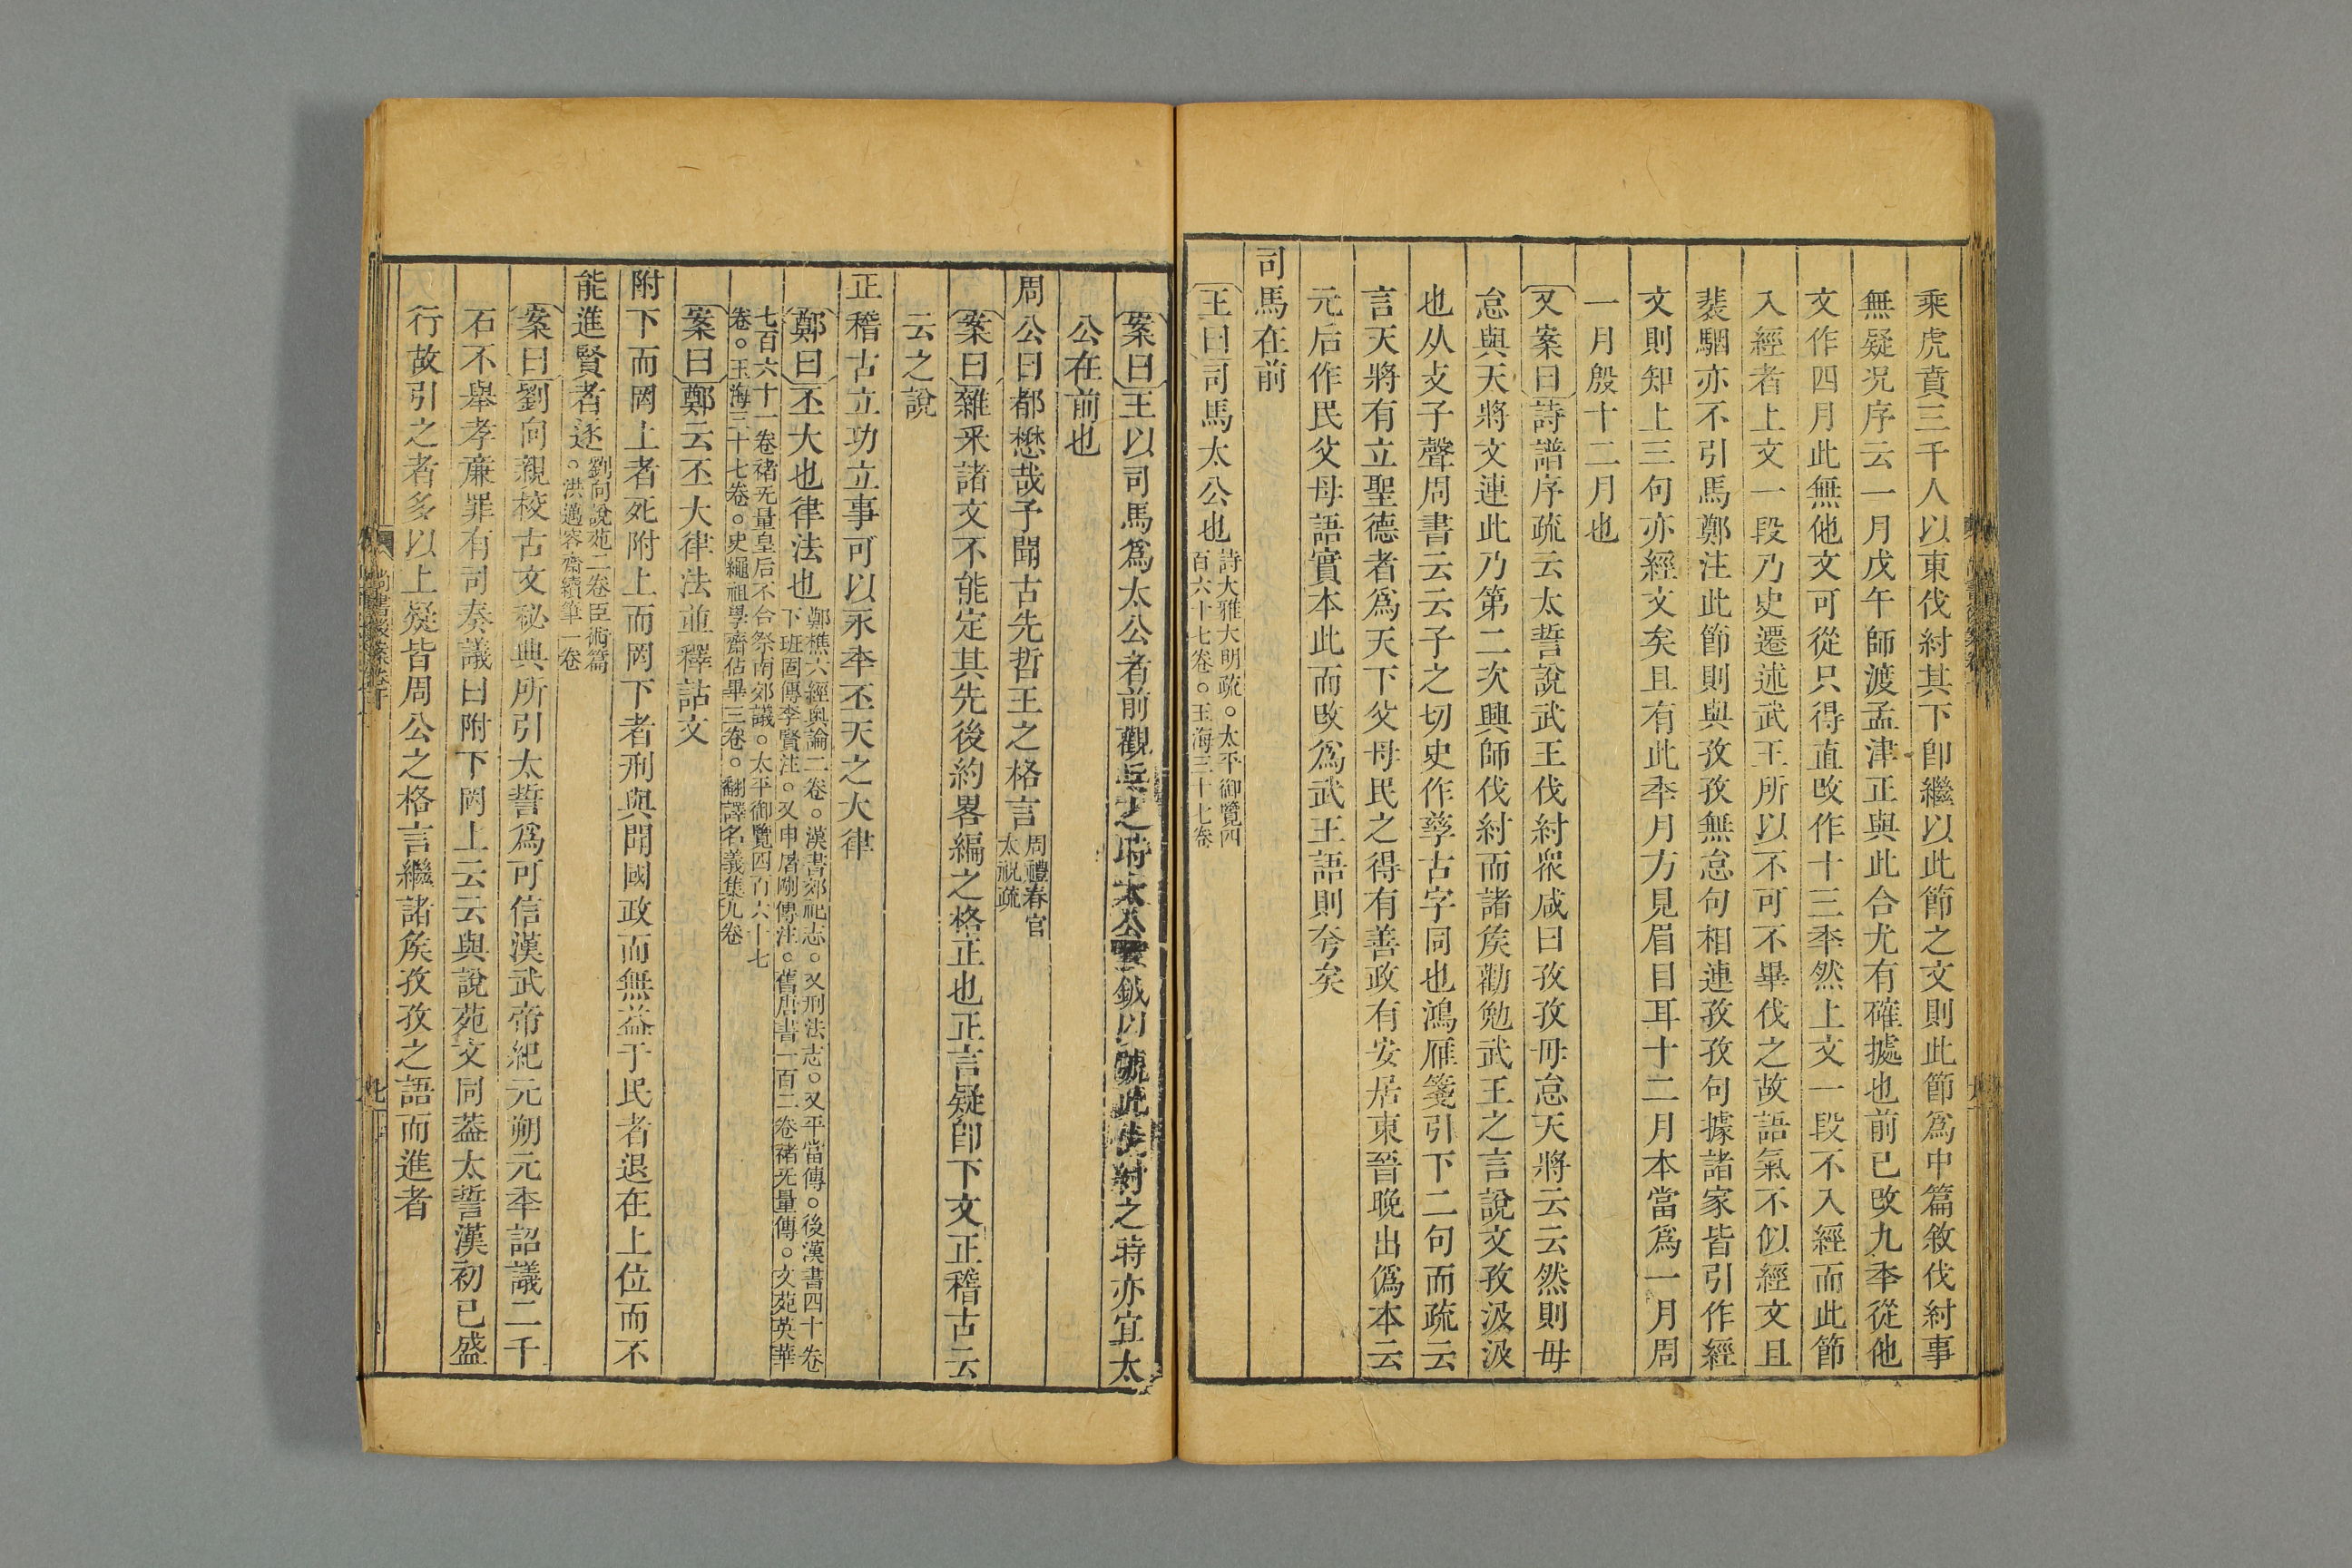 乘虎賁三千人以東伐紂其下卽繼以此節之文則此節爲中篇敘伐紂事
無疑况序云一月戊午師渡孟津正與此合尤有確據也前已改九秊從他
文作四月此無他文可從只得直改作十三秊然上文一段不入經而此節
入經者上文一段乃史遷述武王所以不可不畢伐之故語氣不似經文且
裴駰亦不引馬鄭注此節則與孜孜無怠句相連孜孜句據諸家皆引作經
文則知上三句亦經文矣且有此秊月方見眉目耳十二月本當爲一月周
一月殷十二月也
又案曰詩譜序疏云太誓說武王伐紂衆咸曰孜孜毋怠天將云云然則毋
怠與天將文連此乃第二次興師伐紂而諸矦勸勉武王之言說文孜汲汲
也从攴子聲周書云云子之切史作孳古字同也鴻雁箋引下二句而疏云
言天將有立聖德者爲天下父母民之得有善政有安居東晉晚出僞本云
元后作民父母語實本此而改爲武王語則夸矣
司馬在前
王曰司馬太公也詩大雅大明疏。太平御覽四
百六十七卷。玉海三十七卷
案曰王以司馬爲太公者前觀兵之時太公 鉞以號此伐紂之時亦宜太
公在前也
周公曰都懋哉予聞古先哲王之格言周禮春官
太祝疏
案曰雜采諸文不能定其先後約畧編之格正也正言疑卽下文正稽古云
云之說
正稽古立功立事可以永秊丕天之大律
鄭曰丕大也律法也鄭樵六經奧論二卷。漢書郊祀志。又刑法志。又平當傳。後漢書四十卷
下班固傳李賢注。又申屠剛傳注。舊唐書一百二卷褚旡量傳。文苑英華
七百六十一卷褚旡量皇后不合祭南郊議。太平御覽四百六十七
卷。玉海三十七卷。史繩祖學齋佔畢三卷。翻譯名義集九卷
案曰鄭云丕大律法並釋詁文
附下而罔上者死附上而罔下者刑與聞國政而無益于民者退在上位而不
能進賢者逐。劉向說苑二卷臣術篇
洪邁容齋續筆一卷
案曰劉向親校古文祕典所引太誓爲可信漢武帝紀元朔元秊詔議二千
石不舉孝廉罪有司奏議曰附下罔上云云與說苑文同葢太誓漢初已盛
行故引之者多以上疑皆周公之格言繼諸矦孜孜之語而進者